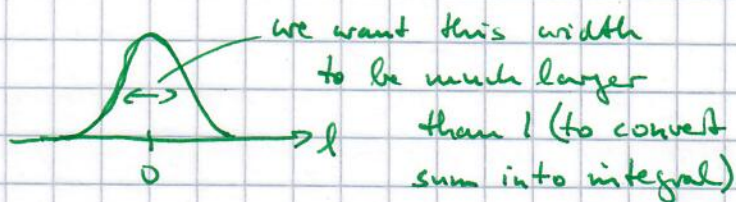 we want this width
to be much larger
than 1 (to convert
sum into integral)
l
0